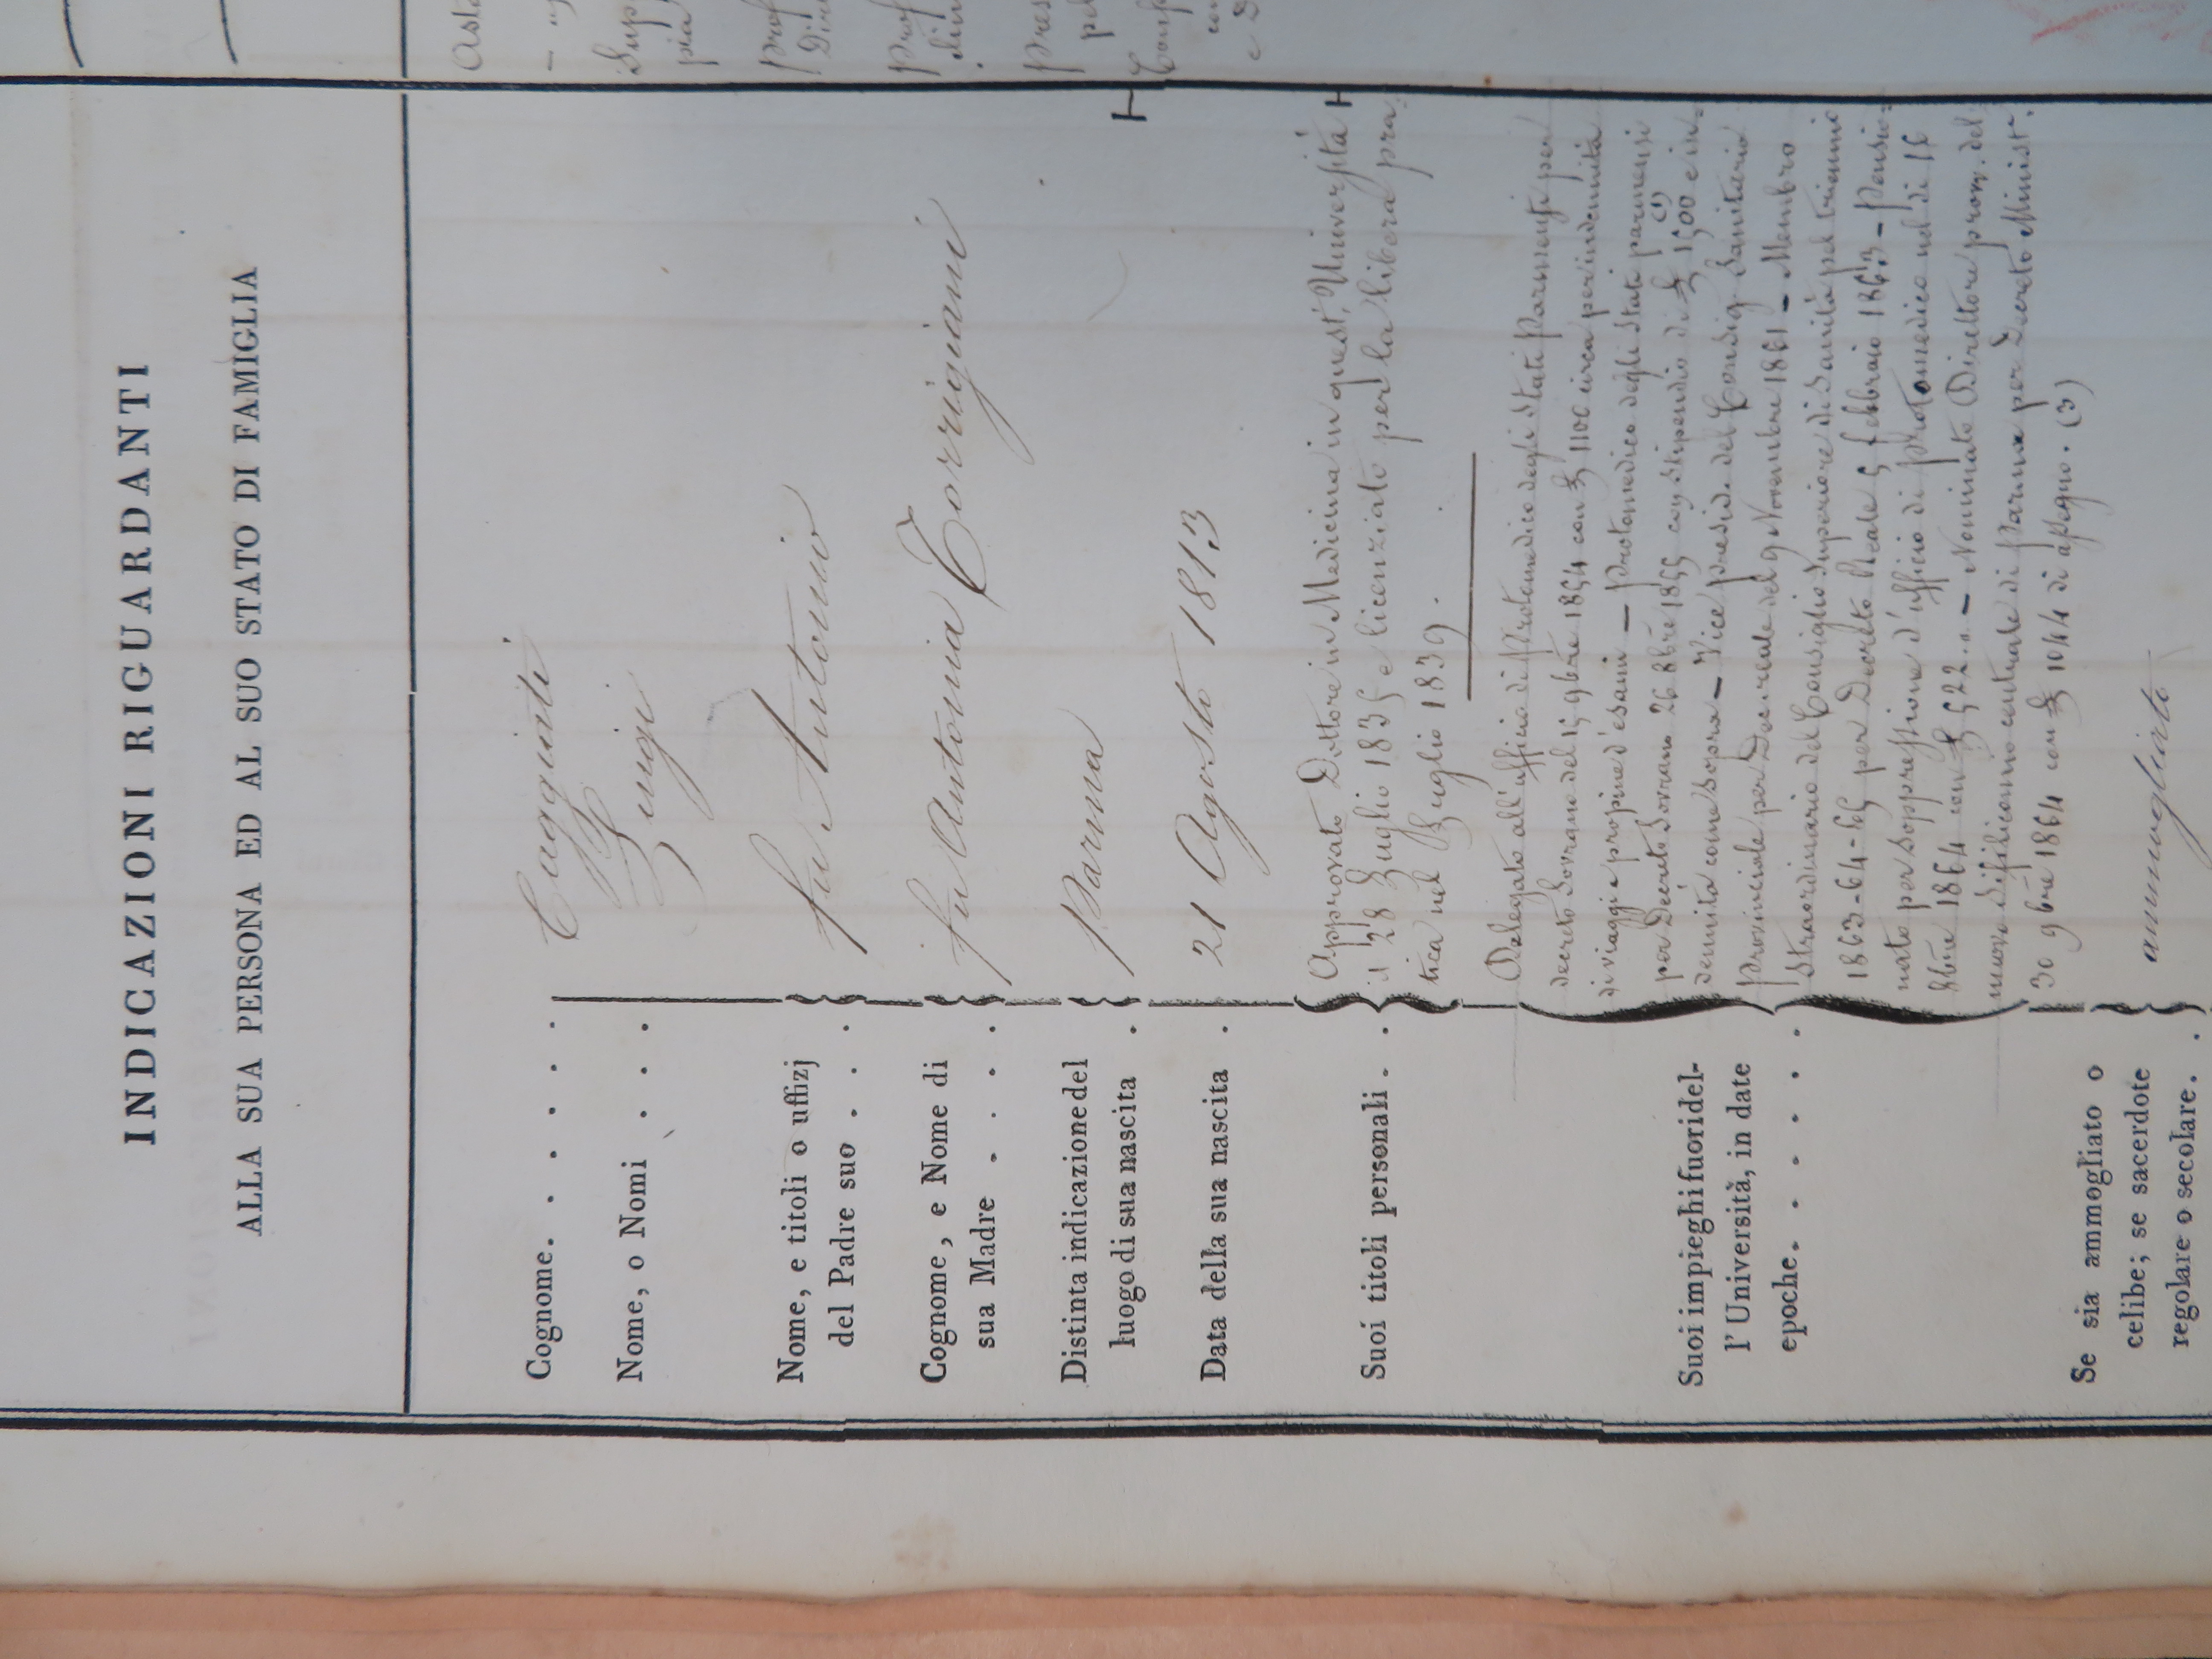 INDICAZIONI RIGUARDANTI
ALLA SUA PERSONA ED AL SUO STATO DI FAMIGLIA
Cognome. . . . . . Caggiati
Nome, o Nomi . . . Luigi
Nome, e titoli o uffizj
del Padre suo . . . . fu Antonio
Cognome, e Nome di
sua Madre . . . . fu Antonia Corrigiani
Distinta indicazione del
luogo di sua nascita . Parma
Data della sua nascita . 21 Agosto 1813
Suoi titoli personali . .
Approvato Dottore in Medicina in quest'Università
il 28 Luglio 1835 e licenziato per la libera pra=
tica nel Luglio 1839.
Suoi impieghi fuori del-
l'Università, in date
epoche. . . . . . .
Delegato all'ufficio di Protomedico degli Stati Parmensi per
decreto Sovrano del 15 9bre 1854 con £ 1100 circa per indennità
di viaggi e propine d'esami – Protomedico degli Stati parmensi
per Decreto Sovrano 26 8bre 1855 con stipendio di £ 1500 (1) e in=
dennità come sopra – Vice presid. del Consig. Sanitario
Provinciale per Dec. reale del 9 Novembre 1861 – Membro
straordinario del Consiglio Superiore di Sanità pel triennio
1863-64-65 per Decreto Reale 5 febbraio 1863 – Pensio=
nato per soppressione d'ufficio di protomedico nel dì 16
8bre 1864 con £ 522 – Nominato Direttore prov. del
nuovo sifilicomio centrale di Parma per Decreto Minist.
30 9bre 1864 con £ 1044 di assegno. (3)
Se sia ammogliato o
celibe; se sacerdote
regolare o secolare. . ammogliato